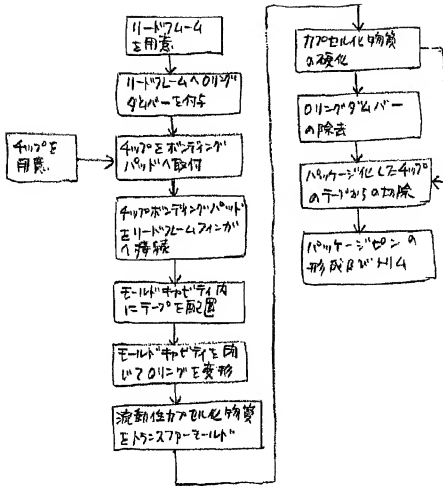 リードフレーム
を用意
リードフレームへOリング
ダムバーを付与
チップを
用意
チップをボンディング
パッドへ取付
チップボンディングパッド
をリードフレームフィンガ
へ接続
モールドキャビティ内
にテープを配置
モールドキャビティを閉
じてOリングを変形
流動性カプセル化物質
をトランスファーモールド
カプセル化物質
の硬化
Oリングダムバー
の除去
パッケージ化したチップ
のテープからの切除
パッケージピンの
形成及びトリム